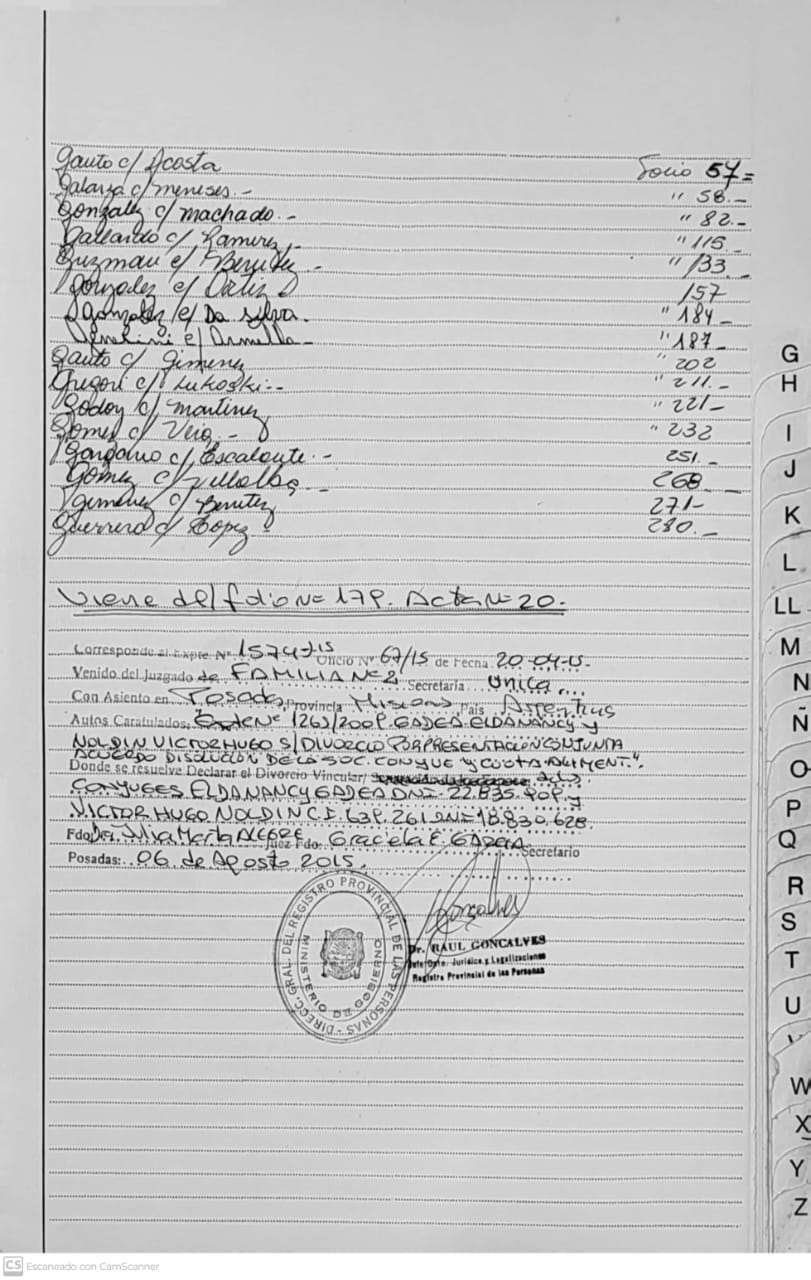 Gauto c/ Acosta Folio 57=
Galarza c/ meneses.- " 58.-
Gonzalez c/ machado.- " 82.-
Gallardo c/ Ramirez.- " 115
Guzman c/ Benitez - " 133
Gonzalez c/ 157
Gonzalez c/ Da Silva. " 184-
c/ " 187-
Gauto c/ Gimenez " 202
Gregori c/ Lukoski.- " 211.-
Godoy c/ Martinez " 221-
Gomes c/ Vera - " 232
c/ Escalante.- 251.-
Gomez c/ Villalba 268
Gimenez c/ Benitez 271-
Guerrero c/ Lopez - 280.-
Viene del folio Nº 179. Acta Nº 20.
Corresponde al Expte. Nº 1574-J-15 Oficio Nº 67/15 de Fecha 20-04-15.
Venido del Juzgado de FAMILIA Nº 2 Secretaría Unica
Con Asiento en Posadas Provincia Misiones País Argentina
Autos Caratulados, Expte Nº 1263/2009. GADEA ELDA NANCY y
NOLDIN VICTOR HUGO S/ DIVORCIO POR PRESENTACION CONJUNTA
ACUERDO DISOLUCION DE LA SOC. CONYUG Y CUOTA ALIMENT.".
Donde se resuelve Declarar el Divorcio Vincular/ de los
CONYUGES ELDA NANCY GADEA DNI- 22.835.909. y
VICTOR HUGO NOLDIN C.I. 639.261 DNI=18.830.628.
Fdo Dra. Julia Marta ALEGRE Juez Fdo: Graciela E. GARCIA Secretario
Posadas: 06 de Agosto 2015.
DIRECC. GRAL. DEL REGISTRO PROVINCIAL DE LAS PERSONAS
MINISTERIO DE GOBIERNO
Goncalves
Dr. RAUL GONCALVES
Jefe Dpto. Jurídico y Legalizaciones
Registro Provincial de las Personas
G
H
I
J
K
L
LL
M
N
Ñ
O
P
Q
R
S
T
U
V
W
X
Y
Z
CS Escaneado con CamScanner